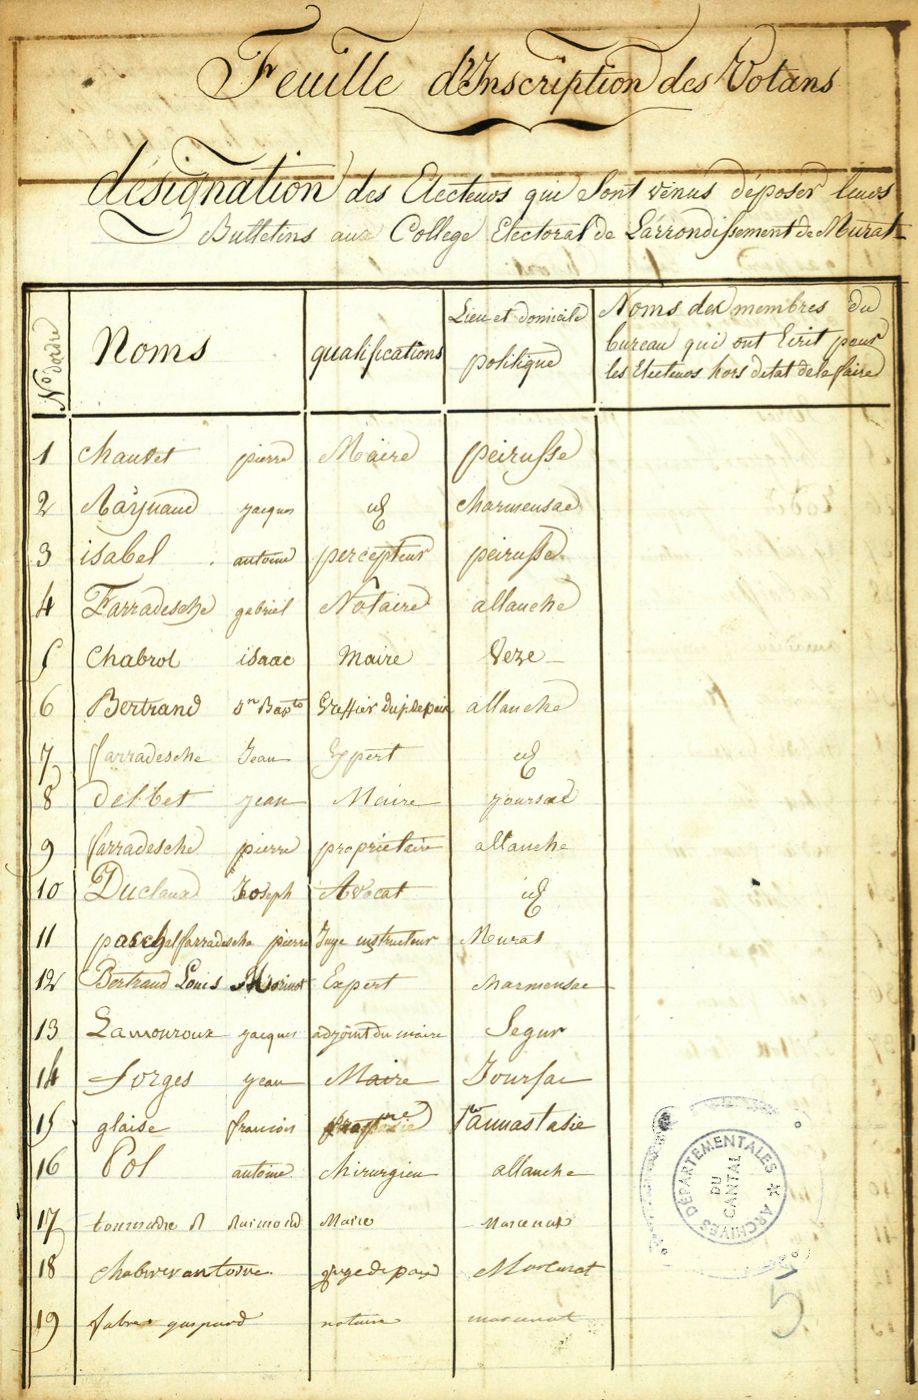 Feuille d'Inscription des Votans
désignation des Electeurs qui sont venus déposer leurs
Bulletins au College Electoral de L'arrondissement de Murat
N° d'ordre
Noms
qualifications
Lieu et domicile
politique
Noms des membres du
bureau qui ont Ecrit pour
les Electeurs hors d'etat de le faire
1 Chauvet pierre Maire peirusse
2 Raynaud jacques id Charmensac
3 isabel antoine percepteur peirusse
4 Farradesche gabriel Notaire allanche
5 Chabrol isaac Maire Veze
6 Bertrand Jn Bapte Greffier du j. de paix allanche
7 farradesche Jean Expert id
8 delbet jean Maire joursac
9 farradesche pierre propriétaire allanche
10 Duclaux Joseph Avocat id
11 paschal farradesche pierre Juge instructeur Murat
12 Bertrand Louis Expert Charmensac
13 Lamouroux jacques adjoint du maire Segur
14 Forges jean Maire Joursac
15 glaise francois Ste annastasie
16 Pol antoine Chirurgien allanche
17 raimond Maire Marcenat
18 antoine juge de paix Marcenat
19 fabre gaspard notaire marcenat
ARCHIVES DÉPARTEMENTALES
DU
CANTAL
5